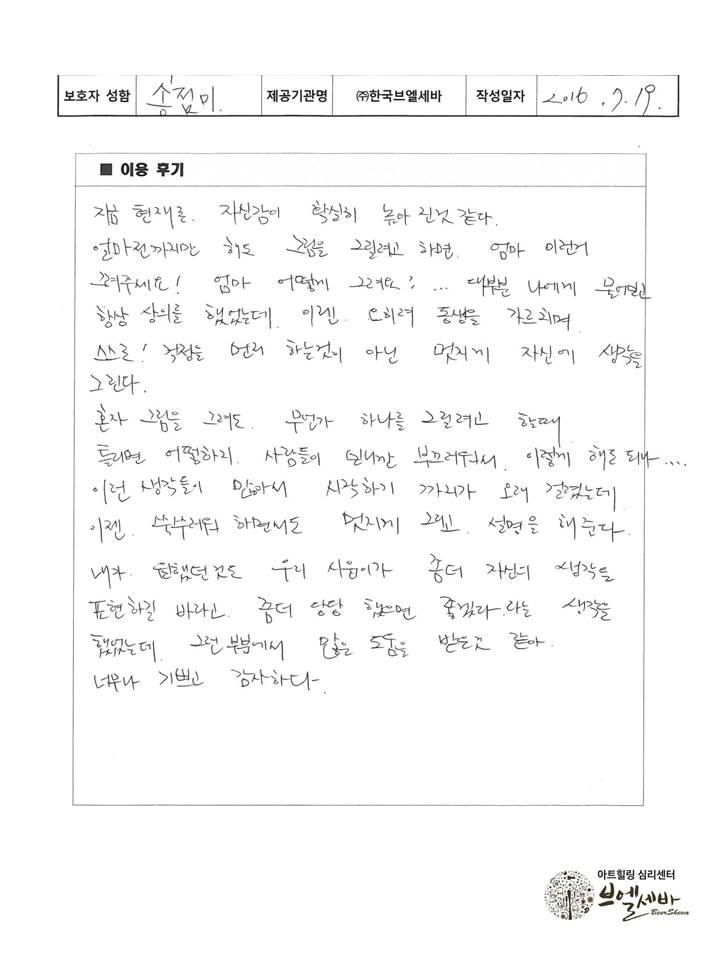 보호자 성함 송점미. 제공기관명 ㈜한국브엘세바 작성일자 2016.7.19.
■ 이용 후기
지금 현재로. 자신감이 확실히 높아 진것 같다.
얼마전까지만 해도 그림을 그릴려고 하면. 엄마 이런거
그려주세요! 엄마 어떻게 그려요? ... 대부분 나에게 물어보고
항상 상의를 했었는데. 이젠. 오히려 동생을 가르치며
스스로! 걱정을 먼저 하는것이 아닌 멋지게 자신에 생각을
그린다.
혼자 그림을 그려도. 무언가 하나를 그릴려고 할때
틀리면 어떨하지. 사람들이 보니깐 부끄러워서. 이렇게 해도 되나...
이런 생각들이 많아서 시작하기 까지가 오래 걸렸는데
이젠. 쑥수러워 하면서도 멋지게 그리고. 설명을 해준다.
내가. 원했던것도 우리 시윤이가 좀더 자신의 생각을
표현하길 바라고. 좀더 당당 했으면 좋겠다.라는 생각을
했었는데. 그런부분에서 많은 도움을 받은것 같아.
너무나 기쁘고 감사하다.
아트힐링 심리센터
브엘세바
BeerSheva